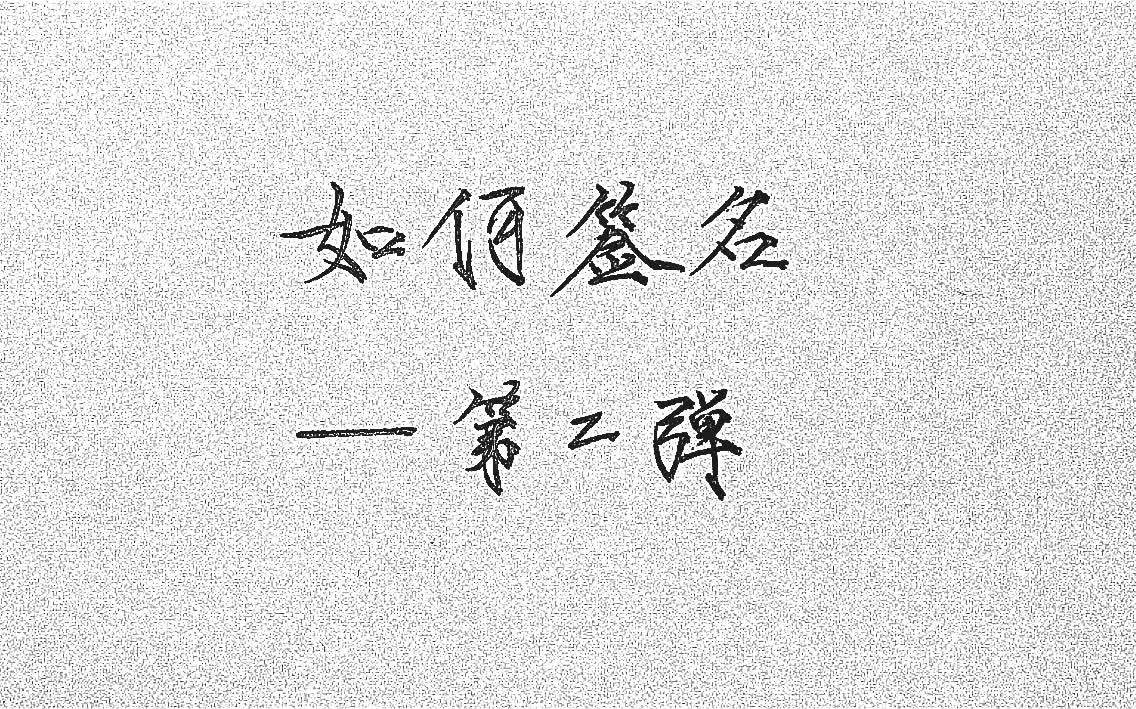 如何签名
—第二弹